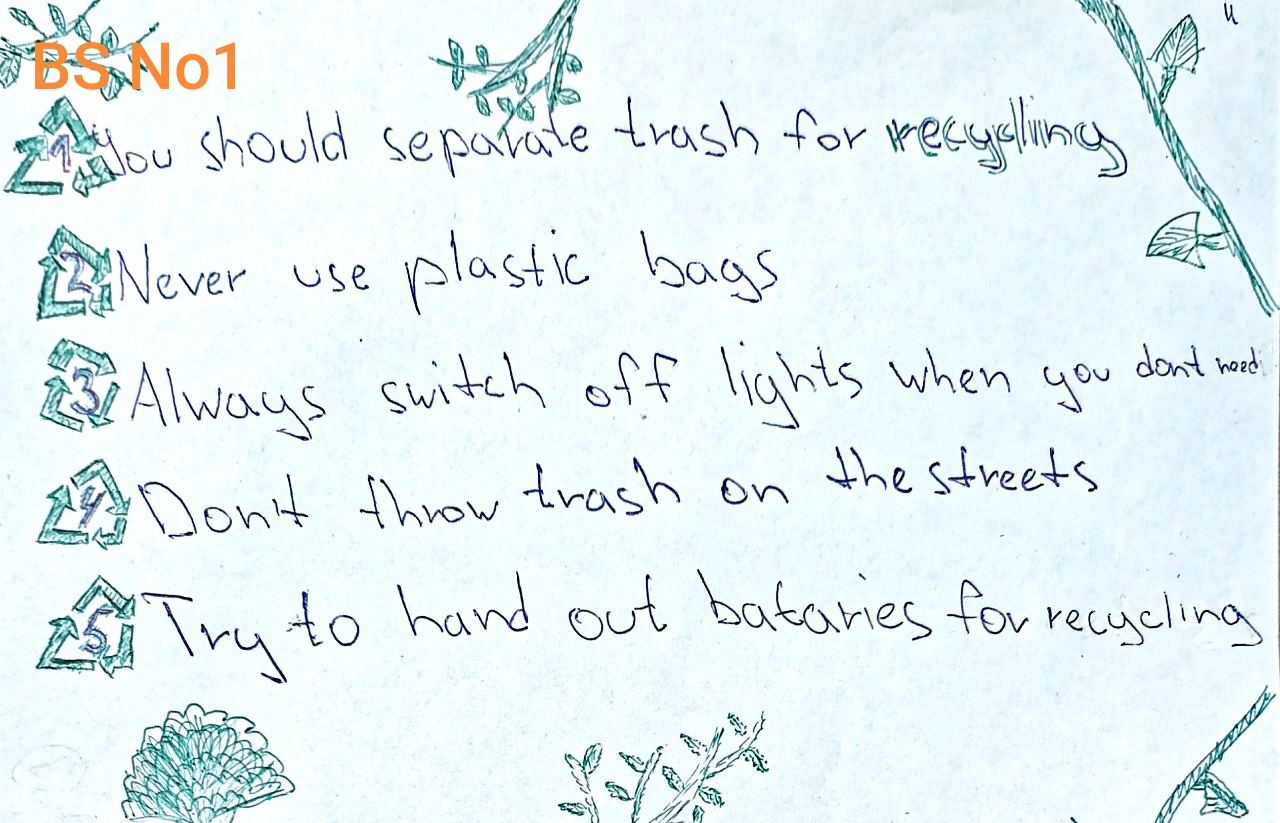 BS No1
1 You should separate trash for recyclling
2 Never use plastic bags
3 Always switch off lights when you don't need
4 Don't throw trash on the streets
5 Try to hand out bataries for recycling